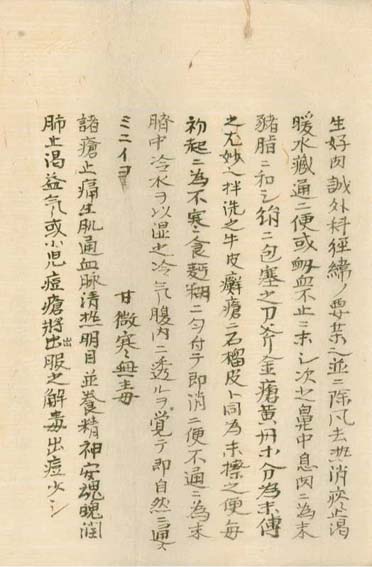 生好肉誠外科経緯ノ要薬之並ニ除风去热消痰止渇
暖水藏通二便或衂血不止ニ末シ次少鼻中息肉ニ為末
豬脂ニ和シ綿ニ包塞之刀斧金瘡黄丹ホ分為末傅
之尤妙之拌洗之牛皮癬瘡ニ石榴皮ト同為末擦之便毎
初起ニ為末寒食麪糊ニ匀付テ即消二便不通ニ為末
臍中冷水ヲ以湿之冷气腹内ニ透ルヲ覚テ即自然ニ通ス
ミニイヨ 甘微寒無毒
諸瘡止痛生肌通血脉清热明目並養精神安魂魄潤
肺止渇益气或小児痘瘡将出服之解毒出痘少シ